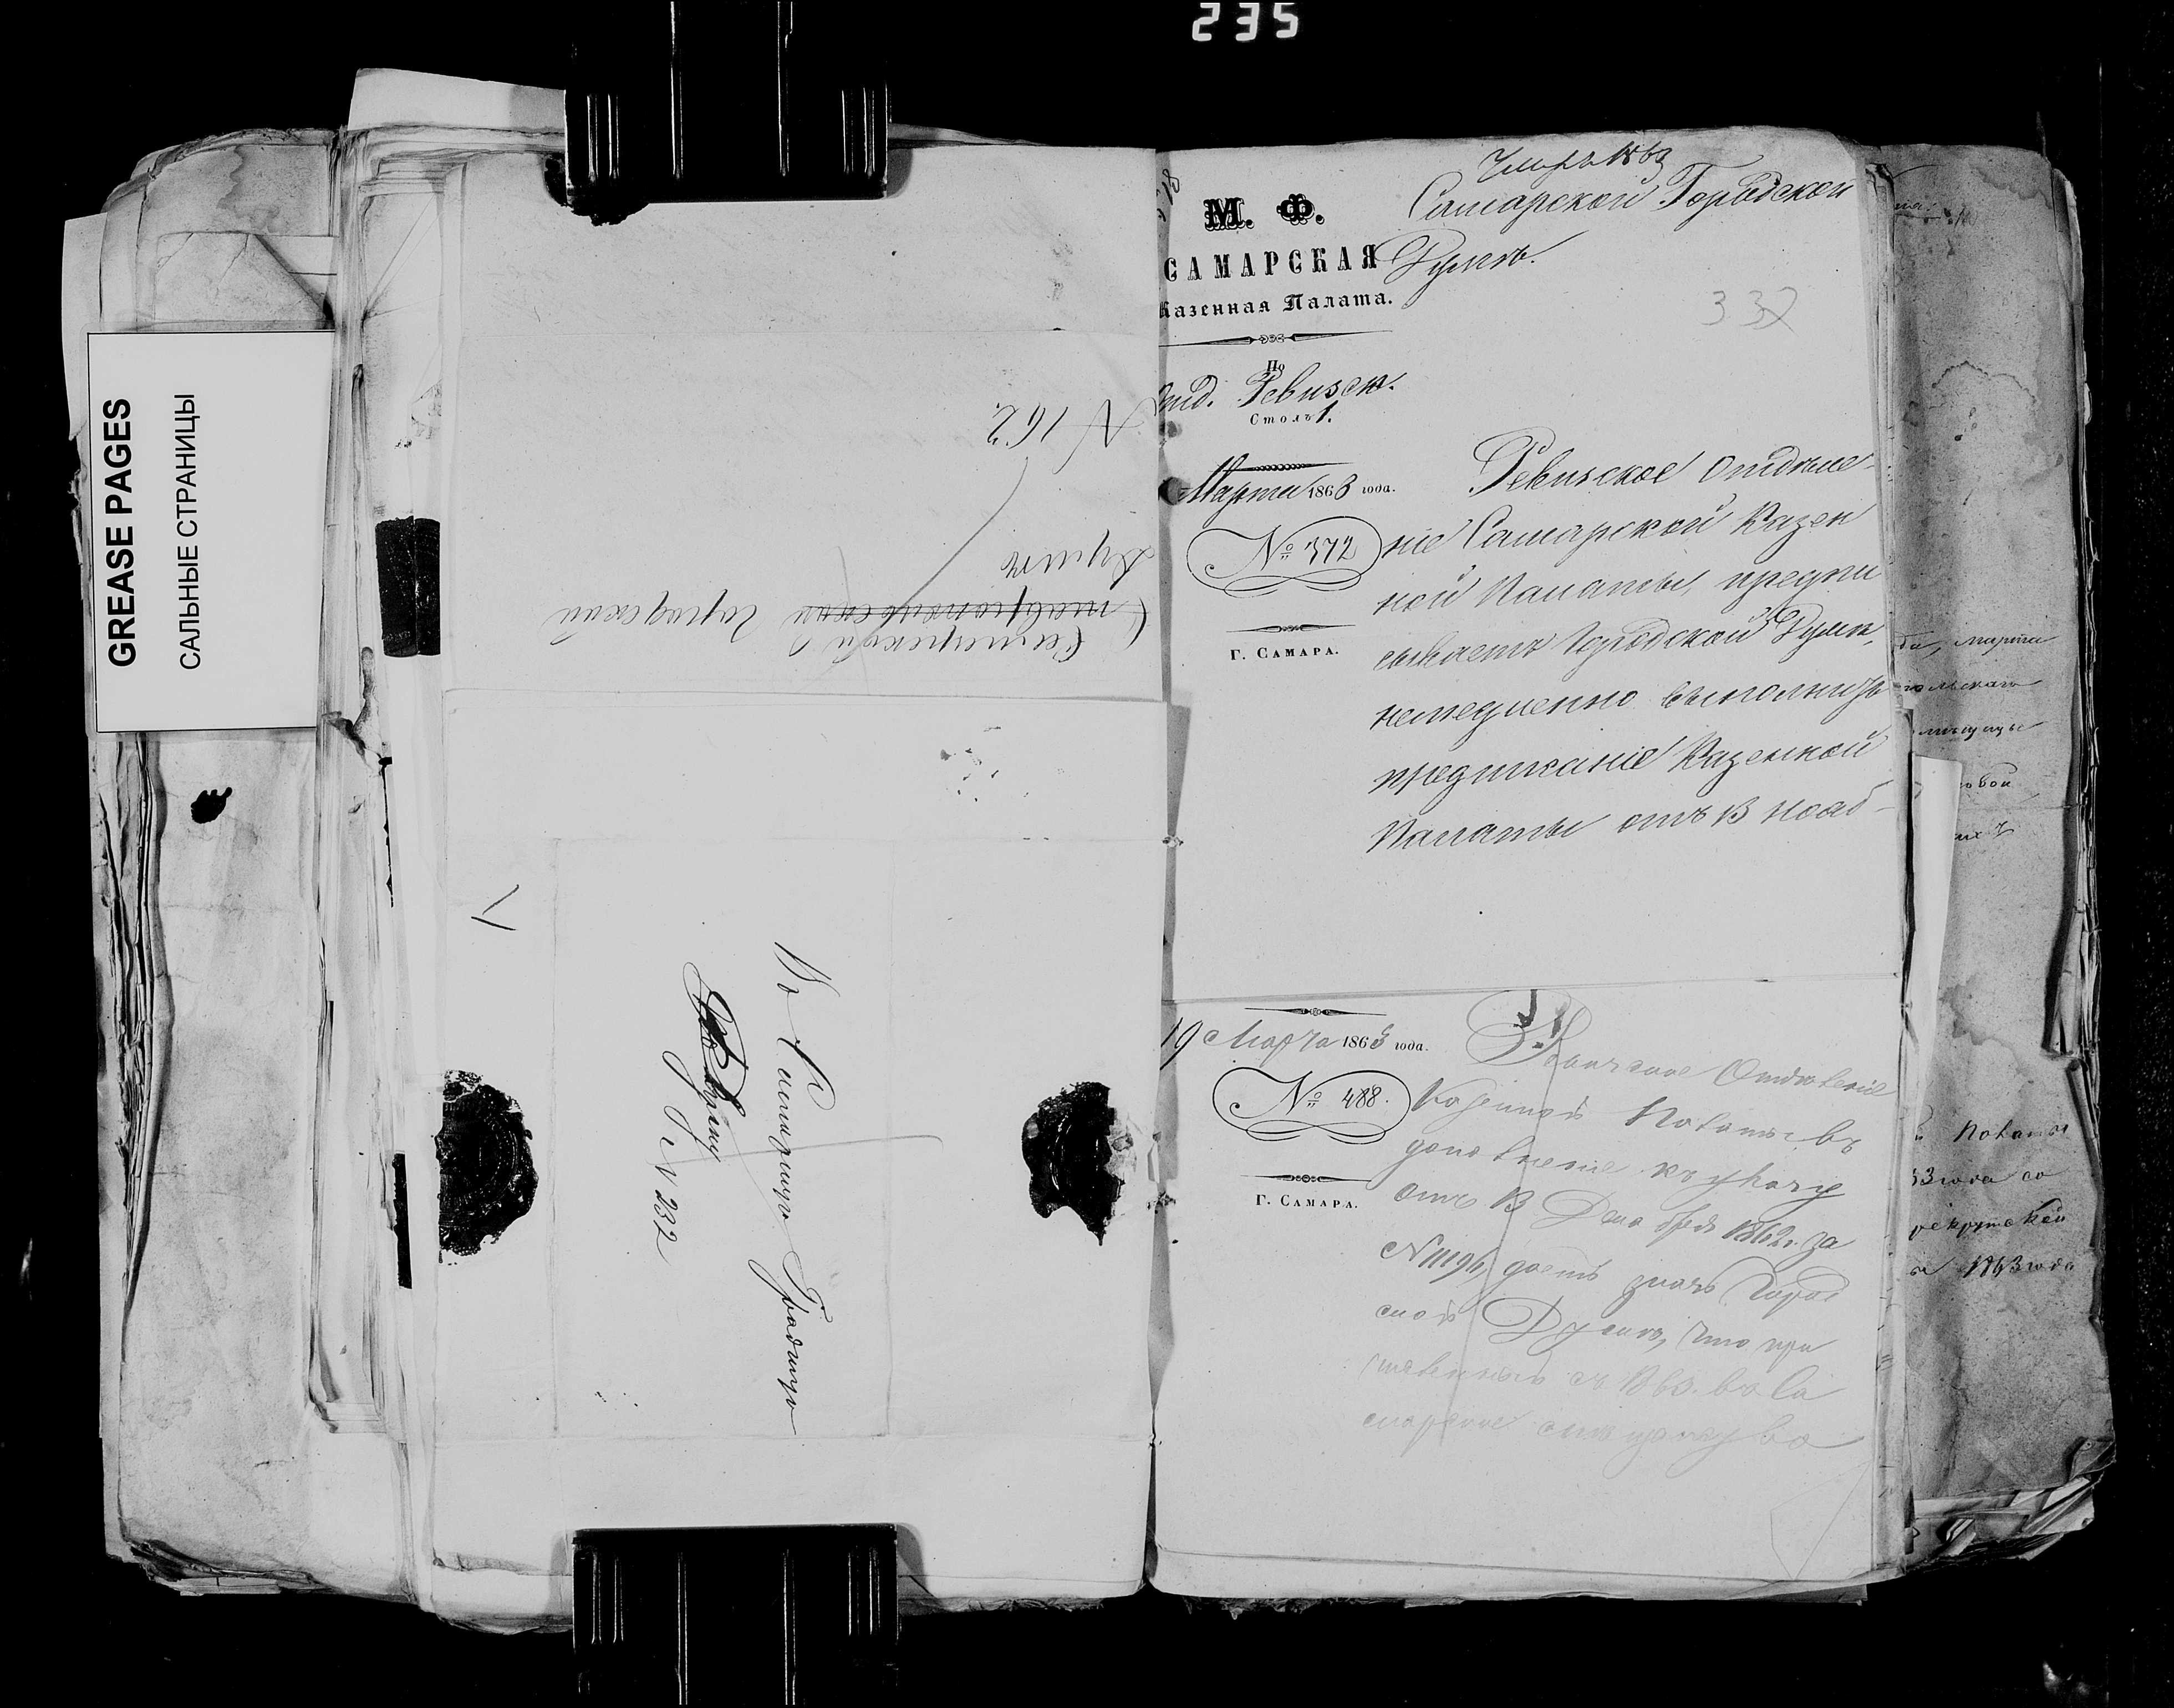 235
GREASE PAGES
САЛЬНЫЕ СТРАНИЦЫ
Самарской
Ставропольской городской
Думе
N 162
Въ Самарскую Градскую
Думу
N 232
М. Ф.
САМАРСКАЯ
Казенная Палата.
По
Отд. Ревизск.
Столъ 1.
Марта 1863 года.
№ 372
Г. САМАРА.
Самарской Городской
Думѣ.
332
Ревизское Отдѣле-
ніе Самарской Казен
ной Палаты, предпи
сываетъ Городской Думѣ,
немедленно выполнить
предписаніе Казенной
Палаты отъ 13 нояб-
19 Марта 1863 года.
№ 488.
Г. САМАРА.
Ревизское Отдѣленіе
Казенной Палаты, въ
дополненіе къ указу
отъ 13 Декабря 1862 г. за
даетъ знать Город
ской Думѣ, что при
численный съ 1863. въ Са
марское
да, марта
Палаты
рекрутской
1863 года